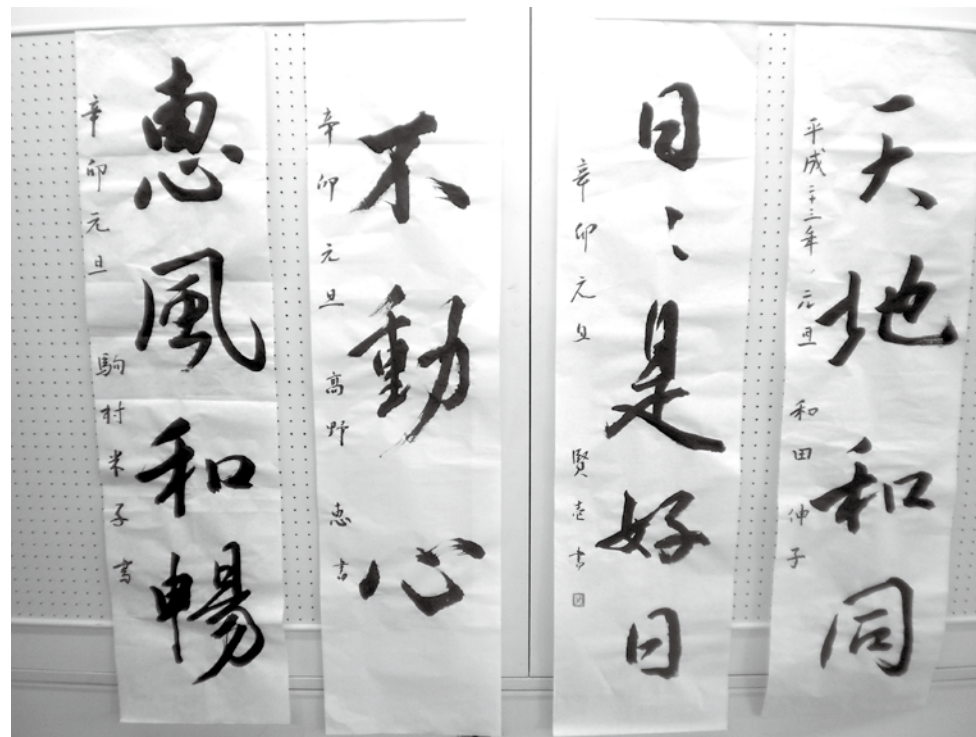 天地和同
平成二十三年 元旦 和田伸子
日〻是好日
辛卯元旦 賢壱書
不動心
辛卯元旦 髙野 恵書
恵風和暢
辛卯元旦 駒村米子書